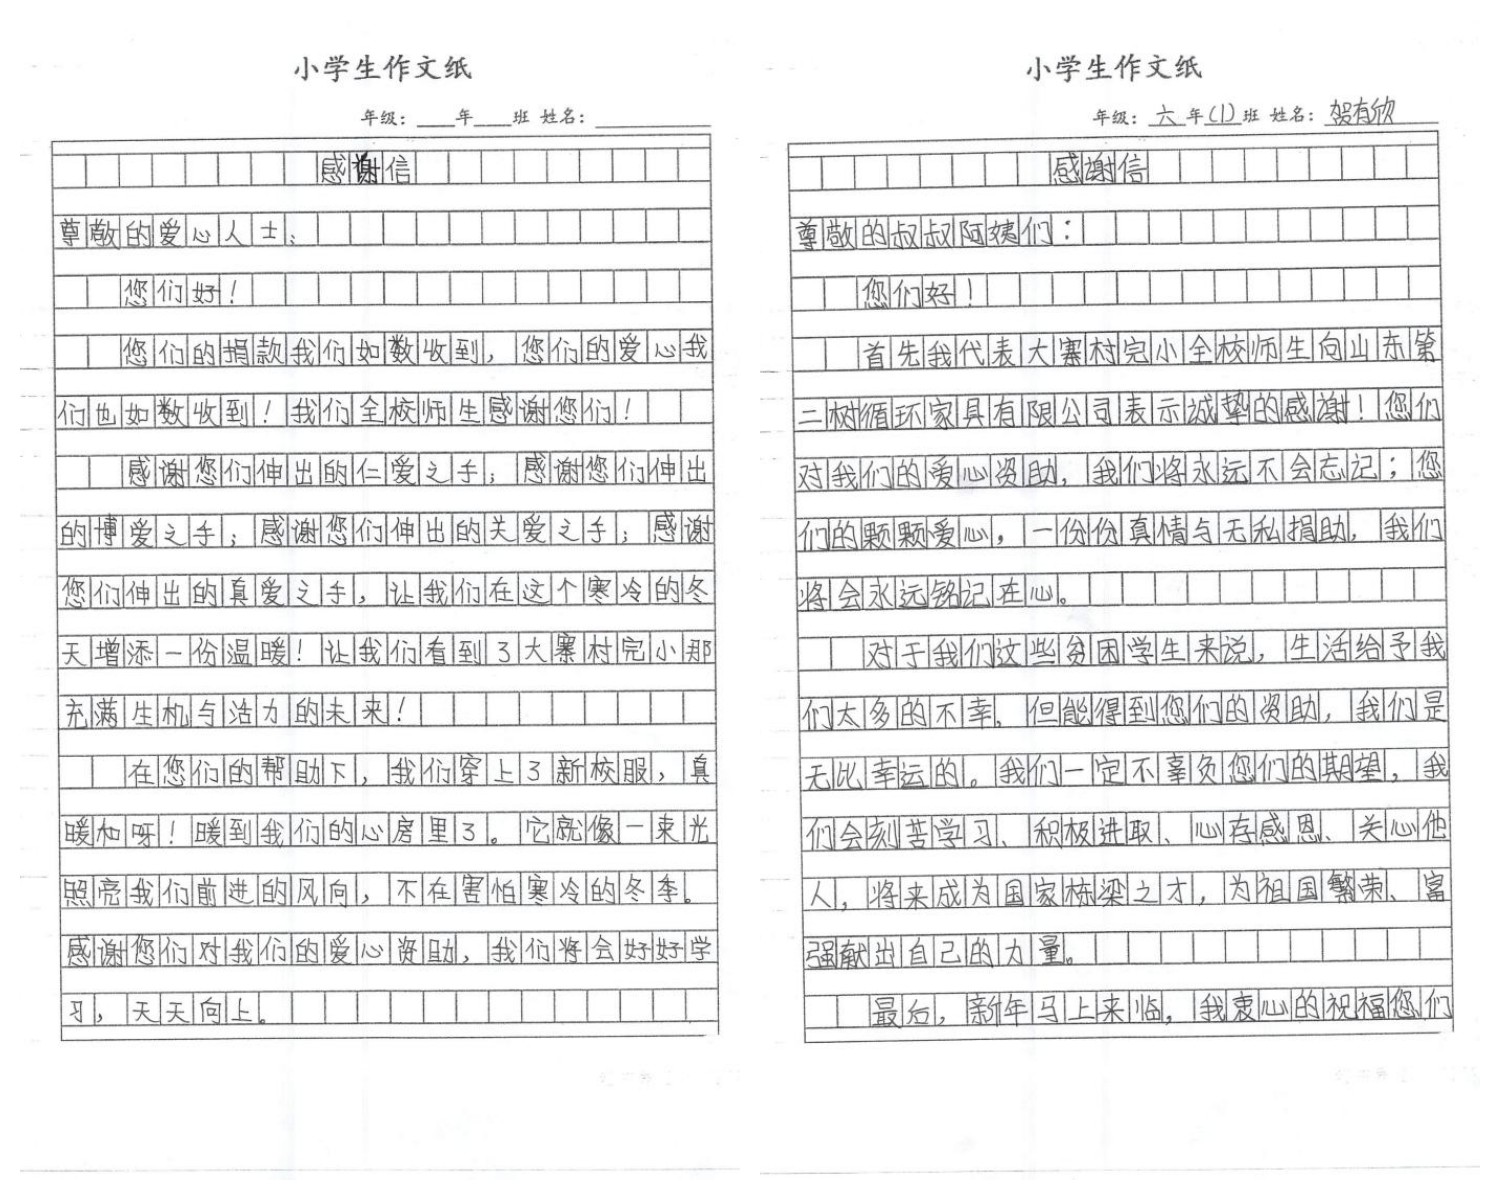 小学生作文纸
年级：____年____班 姓名：__________
感谢信
尊敬的爱心人士：
您们好！
您们的捐款我们如数收到，您们的爱心我
们也如数收到！我们全校师生感谢您们！
感谢您们伸出的仁爱之手；感谢您们伸出
的博爱之手；感谢您们伸出的关爱之手；感谢
您们伸出的真爱之手，让我们在这个寒冷的冬
天增添一份温暖！让我们看到了大寨村完小那
充满生机与活力的未来！
在您们的帮助下，我们穿上了新校服，真
暖和呀！暖到我们的心房里了。它就像一束光
照亮我们前进的风向，不在害怕寒冷的冬季。
感谢您们对我们的爱心资助，我们将会好好学
习，天天向上。
小学生作文纸
年级：六年(1)班 姓名：贺有欣
感谢信
尊敬的叔叔阿姨们：
您们好！
首先我代表大寨村完小全校师生向山东第
二树循环家具有限公司表示诚挚的感谢！您们
对我们的爱心资助，我们将永远不会忘记；您
们的颗颗爱心，一份份真情与无私捐助，我们
将会永远铭记在心。
对于我们这些贫困学生来说，生活给予我
们太多的不幸，但能得到您们的资助，我们是
无比幸运的。我们一定不辜负您们的期望，我
们会刻苦学习、积极进取、心存感恩、关心他
人，将来成为国家栋梁之才，为祖国繁荣、富
强献出自己的力量。
最后，新年马上来临，我衷心的祝福您们